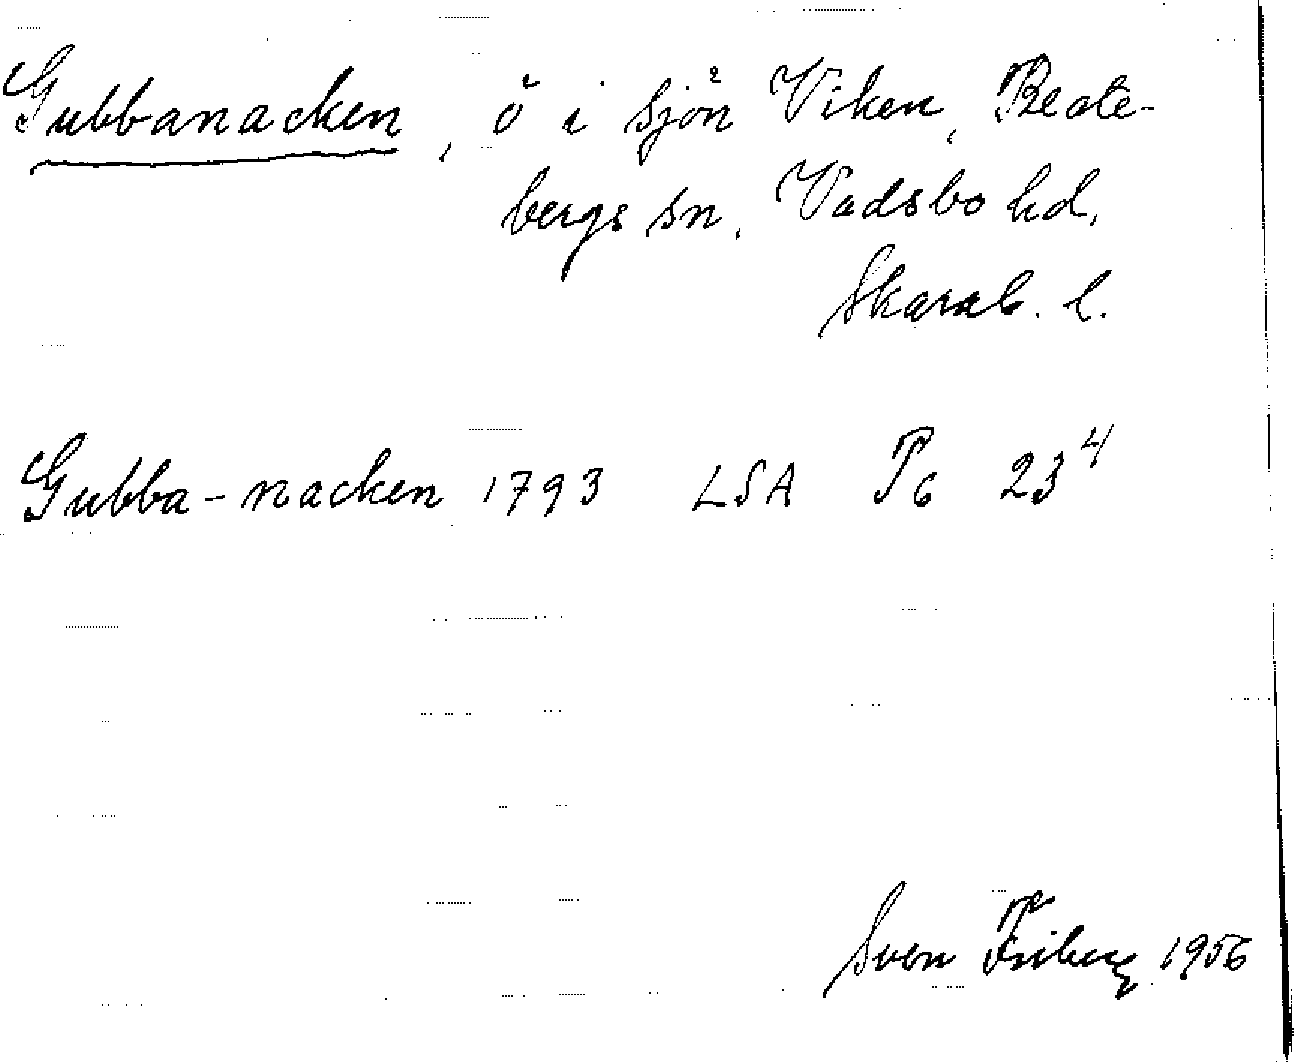 Gubbanacken, ö i sjön Viken, Beate-
bergs sn, Vadsbo hd,
Skarab. l.
Gubba-nacken 1793 LSA P6 23⁴
Sven Friberg 1956